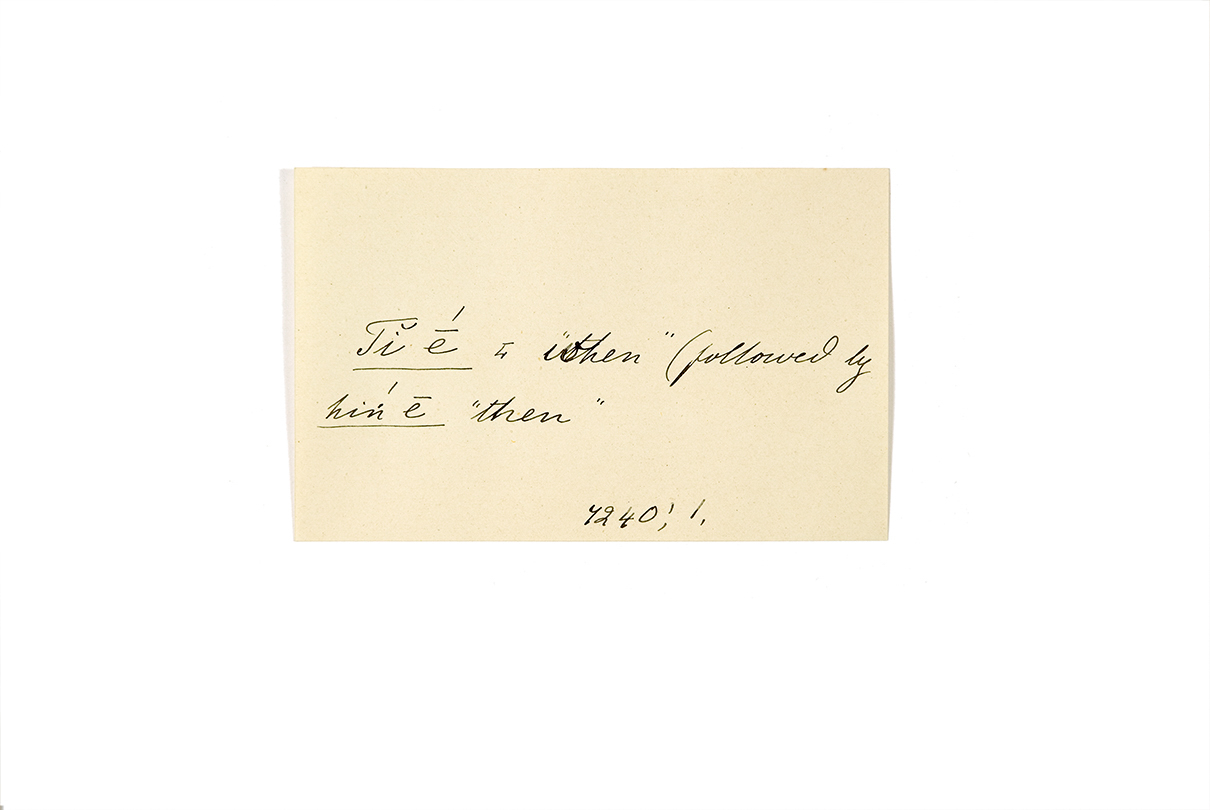 Tĭ ḗ = "then" (followed by
hiṅ́ ē "then"
4240; 1.